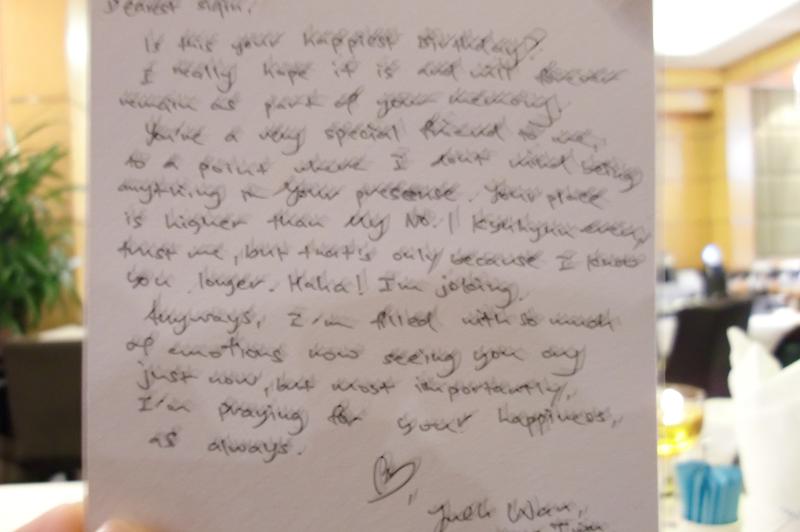 Dearest
Is this your happiest birthday?
I really hope it is and will forever
remain as part of your memory.
You're a very special friend to me,
to a point where I don't mind being
anything in your presence. Your place
is higher than my No. 1 Kyuhyun even,
trust me, but that's only because I know
you longer. Haha! I'm joking.
Anyways, I'm filled with so much
of emotions now seeing you cry
just now, but most importantly,
I'm praying for your happiness,
as always.
Wan,